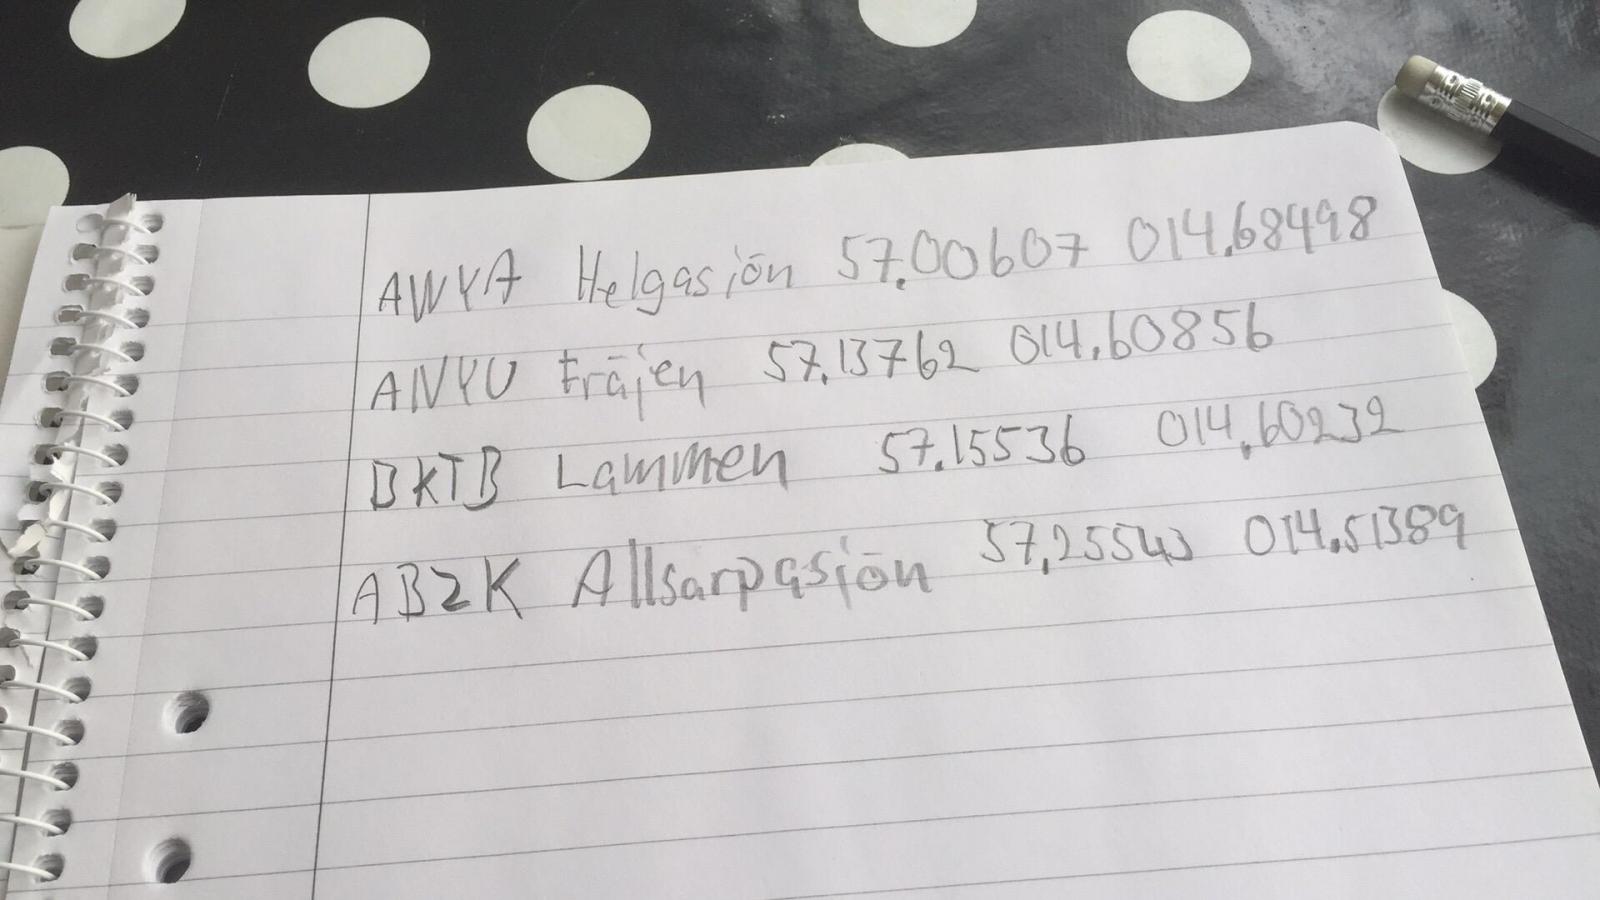 AWYA Helgasjön 57.00607 014.68498
ANYU träjen 57.13762 014.60856
BKTB Lammen 57.15536 014.60232
ABZK Allsarpasjön 57.25543 014.51389